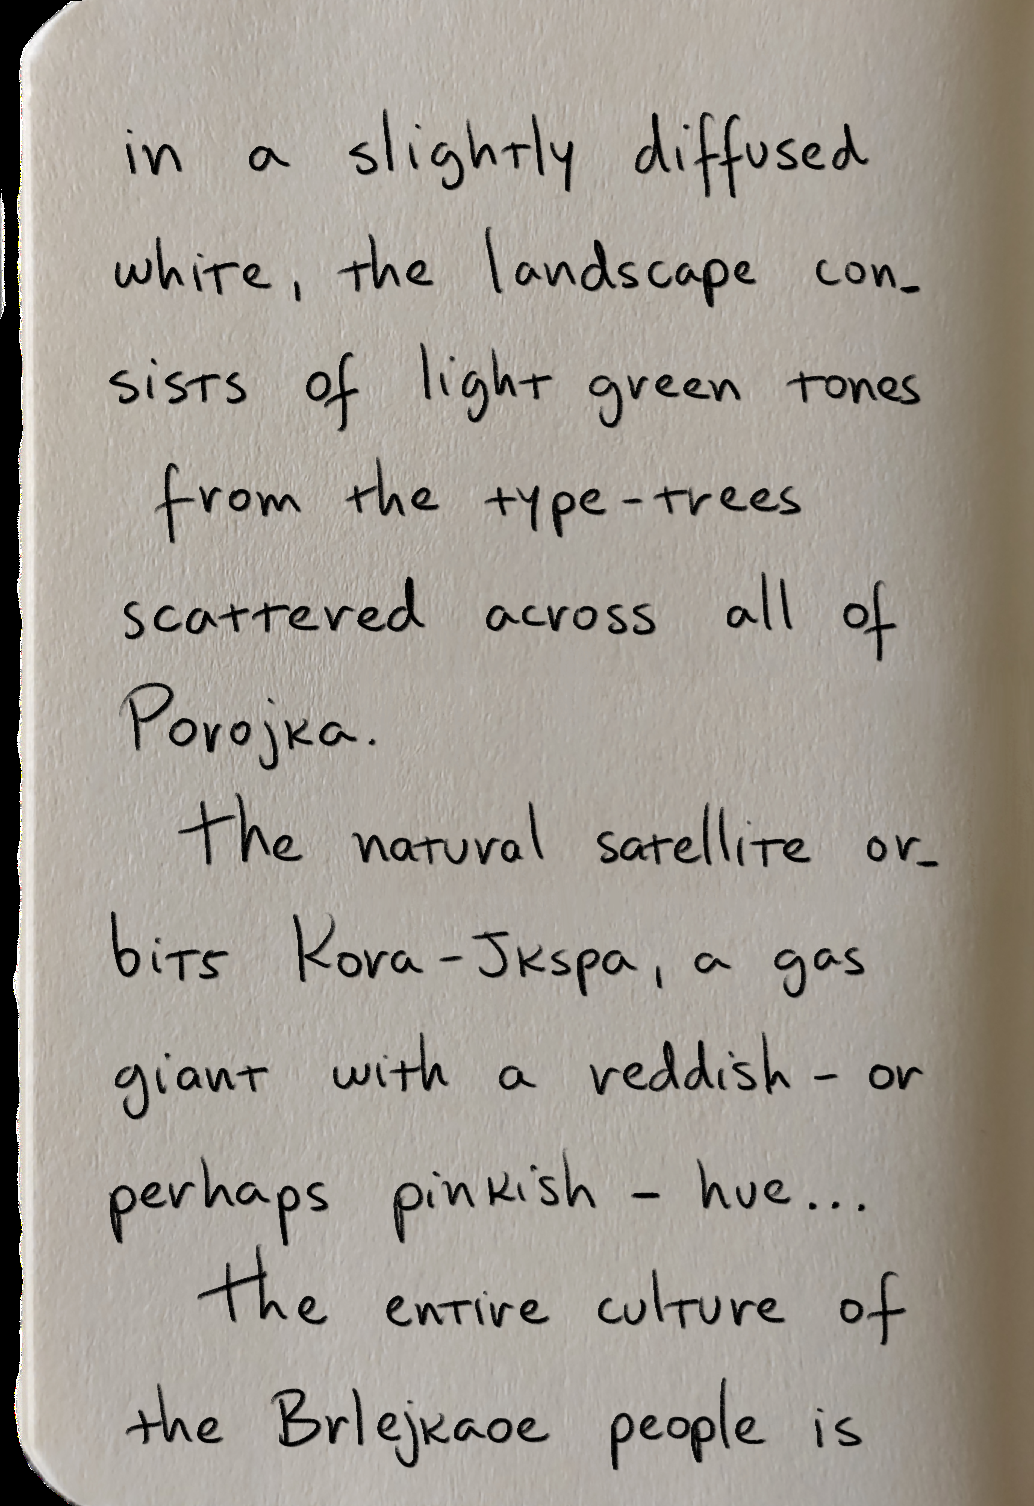 in a slightly diffused
white, the landscape con-
sists of light green tones
from the type-trees
scattered across all of
Porojka.
The natural satellite or-
bits Kora-Jkspa, a gas
giant with a reddish - or
perhaps pinkish - hue...
The entire culture of
the Brlejkaoe people is